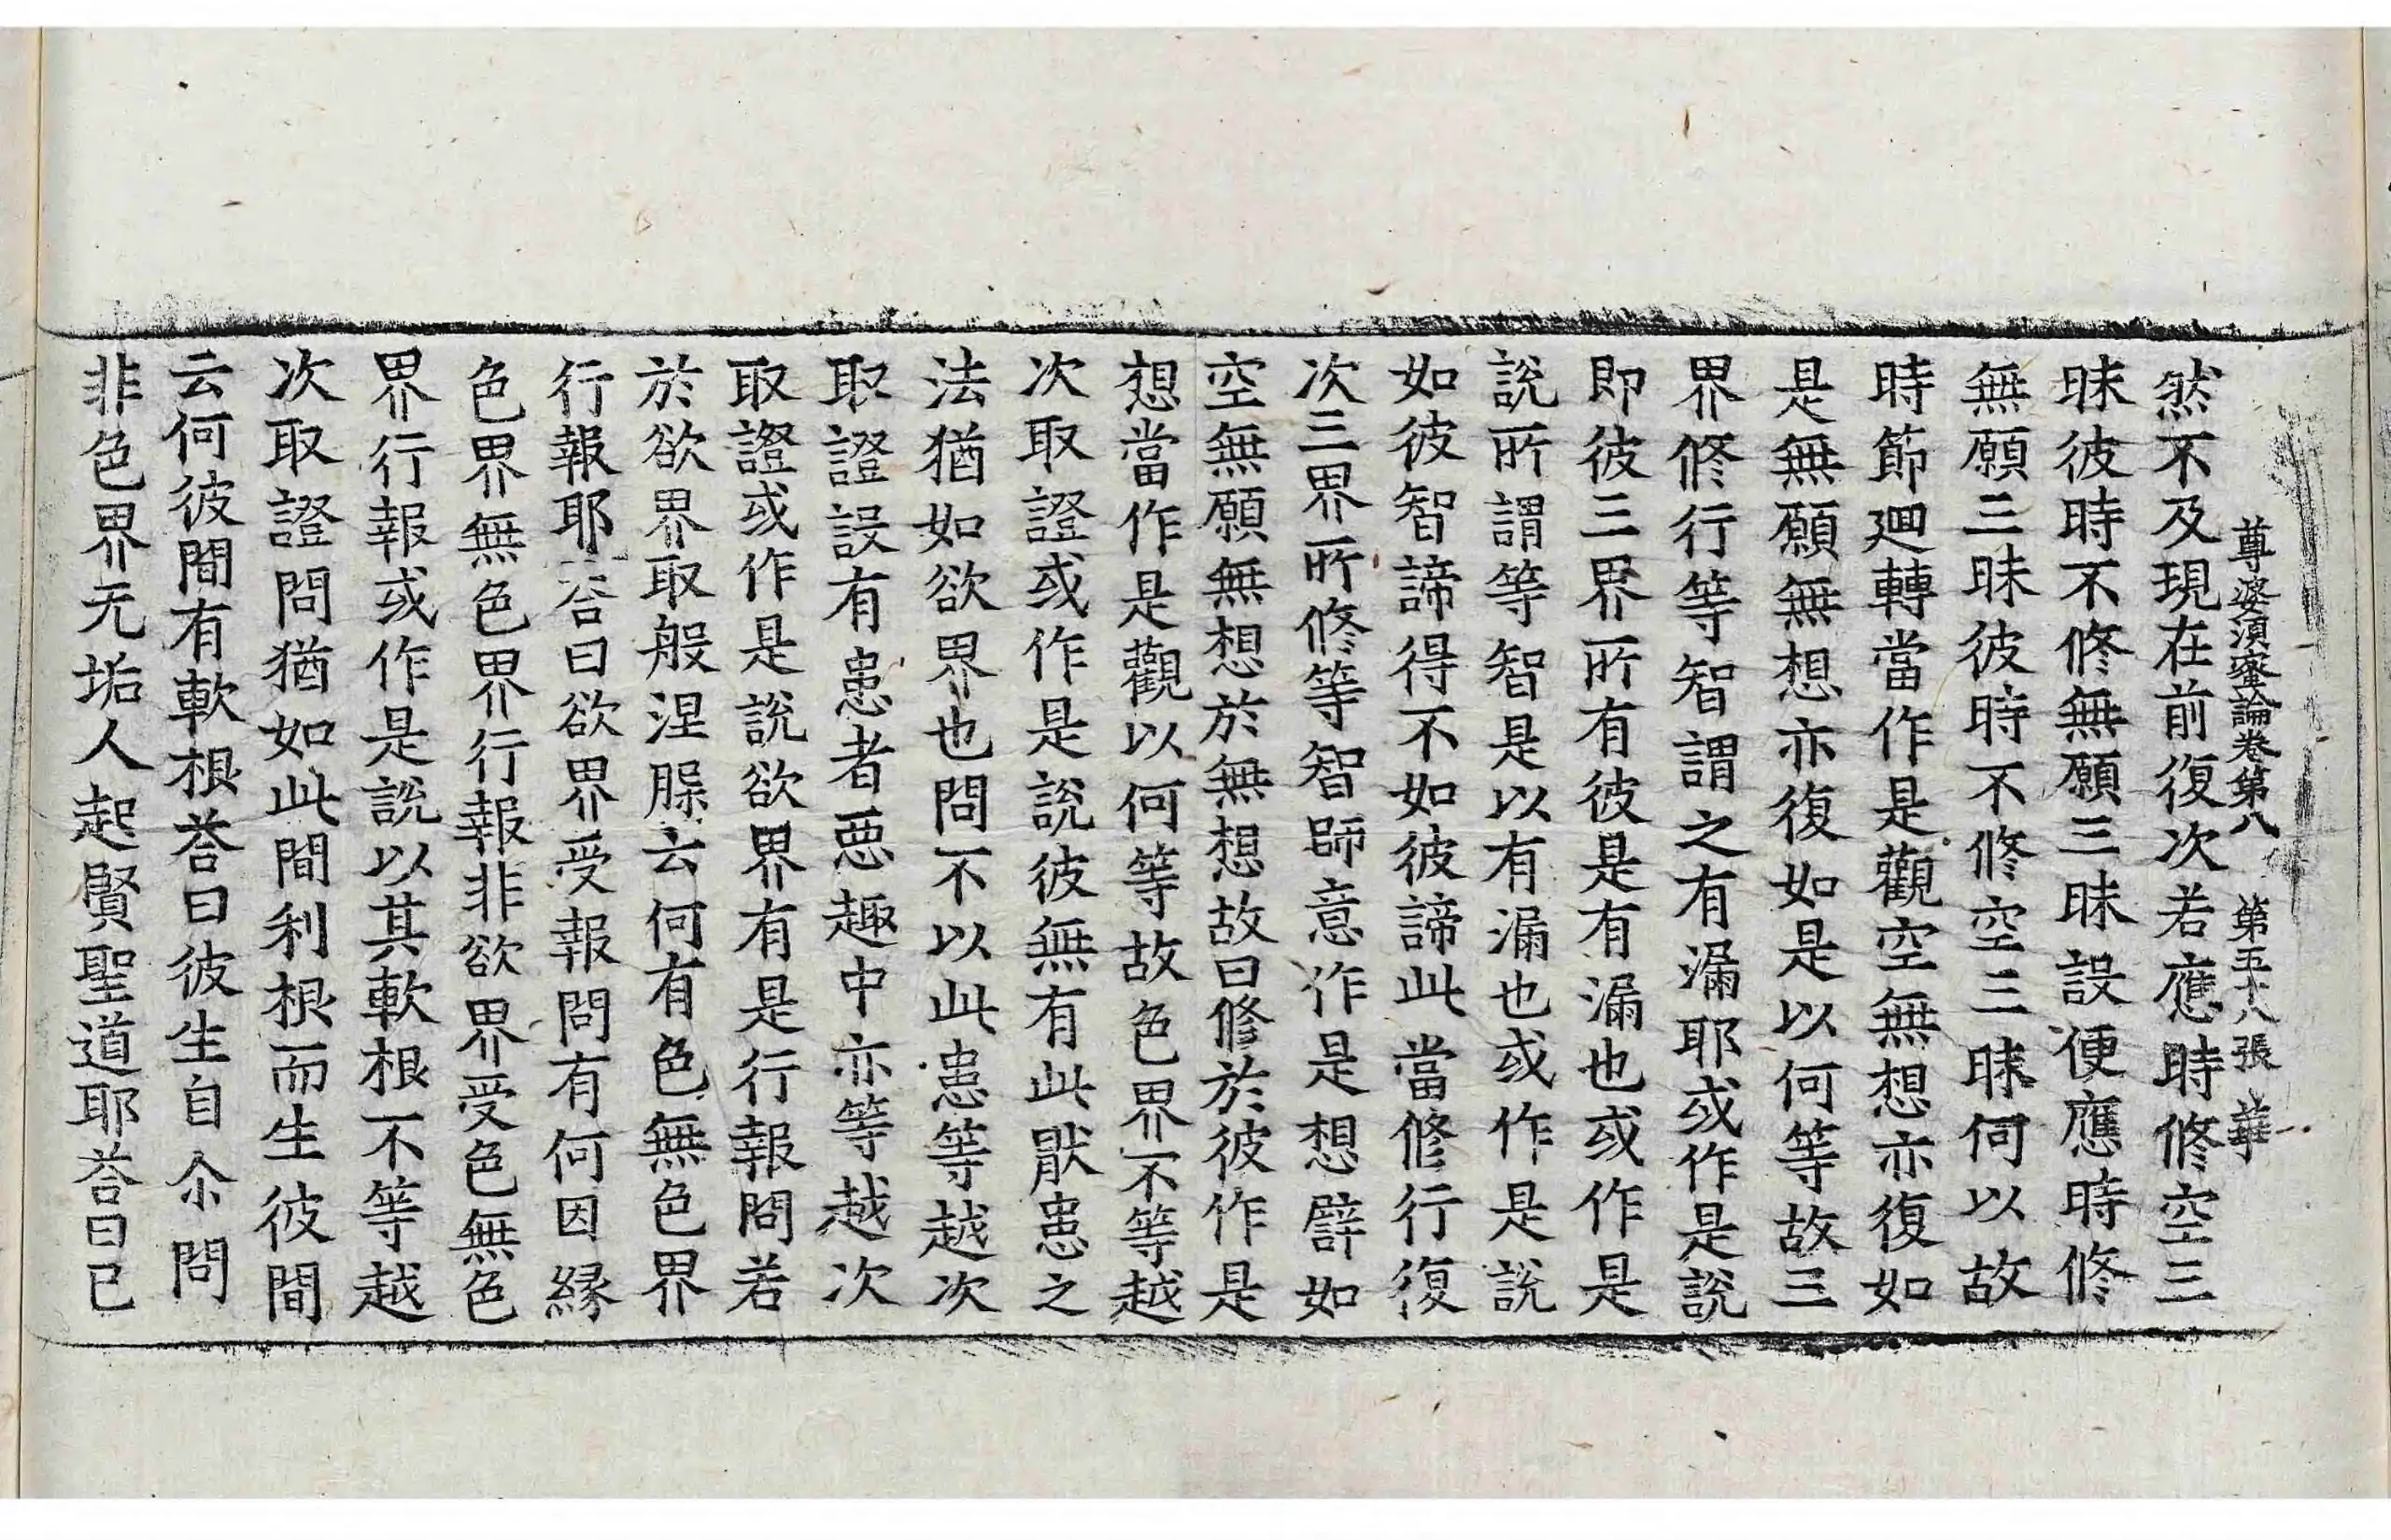 尊婆須蜜論卷第八　第五十八張　華
然不及現在前復次若應時修空三
昧彼時不修無願三昧設便應時修
無願三昧彼時不修空三昧何以故
時節迴轉當作是觀空無想亦復如
是無願無想亦復如是以何等故三
界修行等智謂之有漏耶或作是說
即彼三界所有彼是有漏也或作是
說所謂等智是以有漏也或作是說
如彼智諦得不如彼諦此當修行復
次三界所修等智師意作是想譬如
空無願無想於無想故曰修於彼作是
想當作是觀以何等故色界不等越
次取證或作是說彼無有此猒患之
法猶如欲界也問不以此患等越次
取證設有患者惡趣中亦等越次
取證或作是說欲界有是行報問若
於欲界取般涅槃云何有色無色界
行報耶荅曰欲界受報問有何因縁
色界無色界行報非欲界受色無色
界行報或作是說以其軟根不等越
次取證問猶如此間利根而生彼間
云何彼間有軟根荅曰彼生自尒問
非色界无垢人起賢聖道耶荅曰已